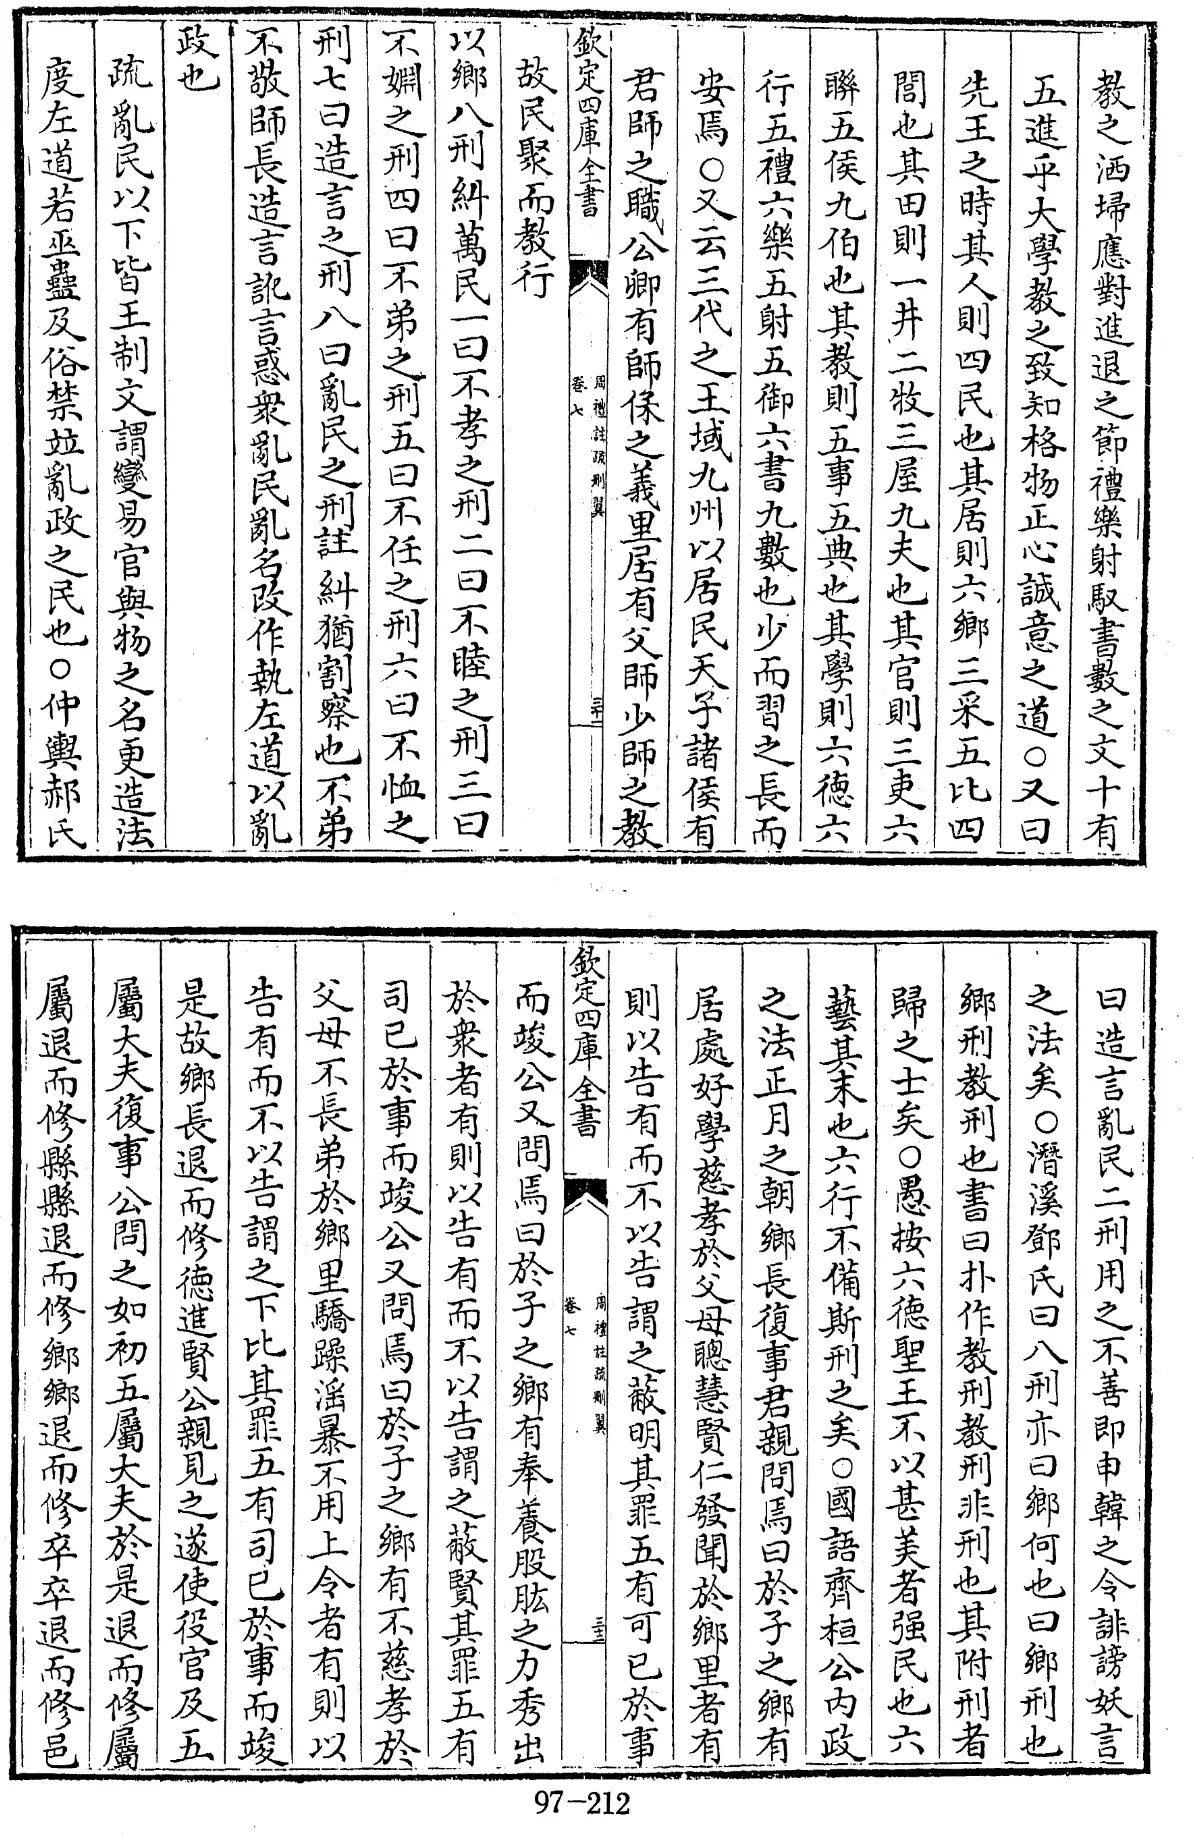 教之洒埽應對進退之節禮樂射馭書數之文十有
五進乎大學教之致知格物正心誠意之道○又曰
先王之時其人則四民也其居則六鄉三采五比四
閭也其田則一井二牧三屋九夫也其官則三吏六
聯五侯九伯也其教則五事五典也其學則六德六
行五禮六樂五射五御六書九數也少而習之長而
安焉○又云三代之王域九州以居民天子諸侯有
君師之職公卿有師保之義里居有父師少師之教
欽定四庫全書
周禮註疏刪翼
卷七
三十一
故民聚而教行
以鄉八刑糾萬民一曰不孝之刑二曰不睦之刑三曰
不婣之刑四曰不弟之刑五曰不任之刑六曰不恤之
刑七曰造言之刑八曰亂民之刑註糾猶割察也不弟
不敬師長造言訛言惑衆亂民亂名改作執左道以亂
政也
疏亂民以下皆王制文謂變易官與物之名更造法
度左道若巫蠱及俗禁竝亂政之民也○仲輿郝氏
曰造言亂民二刑用之不善即申韓之令誹謗妖言
之法矣○潛溪鄧氏曰八刑亦曰鄉何也曰鄉刑也
鄉刑教刑也書曰扑作教刑教刑非刑也其附刑者
歸之士矣○愚按六德聖王不以甚美者强民也六
藝其末也六行不備斯刑之矣○國語齊桓公內政
之法正月之朝鄉長復事君親問焉曰於子之鄉有
居處好學慈孝於父母聰慧賢仁發聞於鄉里者有
則以告有而不以告謂之蔽明其罪五有司已於事
欽定四庫全書
周禮註疏刪翼
卷七
三十二
而竣公又問焉曰於子之鄉有拳養股肱之力秀出
於衆者有則以告有而不以告謂之蔽賢其罪五有
司已於事而竣公又問焉曰於子之鄉有不慈孝於
父母不長弟於鄉里驕躁淫暴不用上令者有則以
告有而不以告謂之下比其罪五有司已於事而竣
是故鄉長退而修德進賢公親見之遂使役官及五
屬大夫復事公問之如初五屬大夫於是退而修屬
屬退而修縣縣退而修鄉鄉退而修卒卒退而修邑
97-212